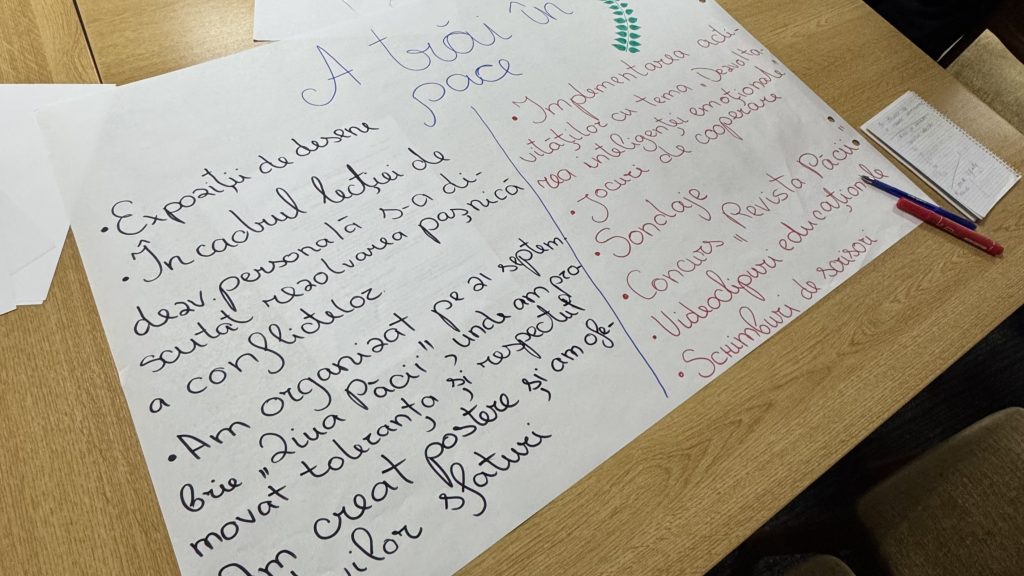 A trăi în
pace
• Expoziții de desene
• În cadrul lecției de
dezv. personală s-a di-
scutat rezolvarea pașnică
a conflictelor.
• Am organizat pe 21 septem
brie „Ziua Păcii", unde am pro
movat toleranța și respectul
Am creat postere și am ofe-
sfaturi
• Implementarea acti-
vităților cu tema „Dezvolta
rea inteligenței emoționale
• Jocuri de cooperare
• Sondaje
• Concurs „Revista Păcii
• Videoclipuri educaționale
• Schimburi de scrisori